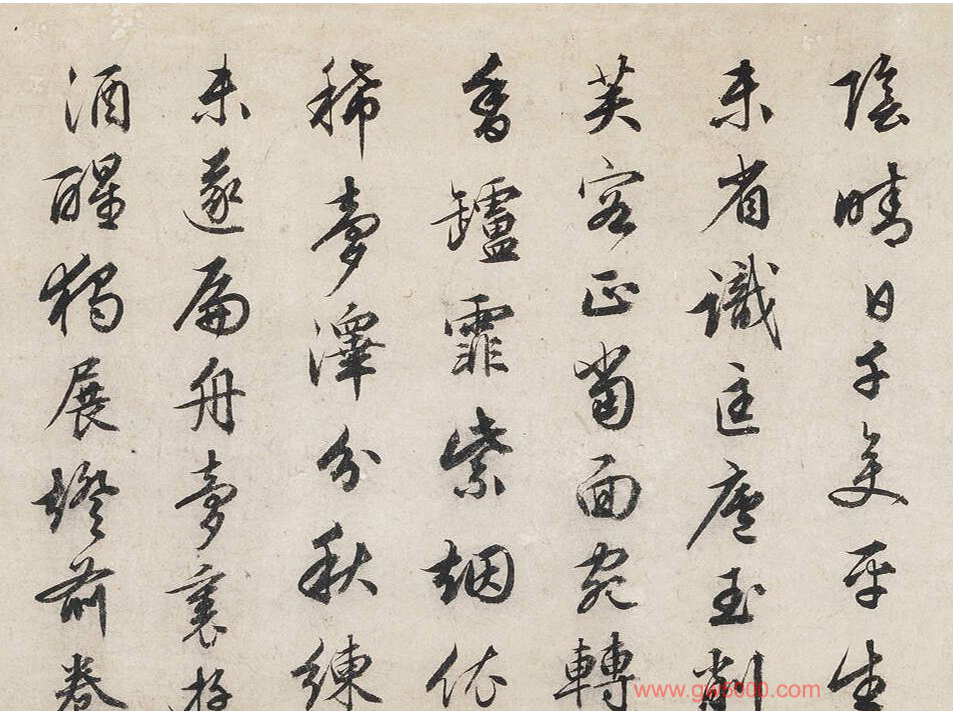 陰晴日千變平生
未省識匡廬玉削
芙容正當面宛轉
香罏霏紫烟依
稀夢澤分秋練
未遂扁舟夢裏游
酒醒獨展燈前卷
www.gw5000.com